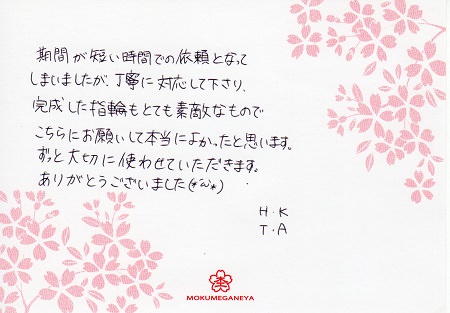 期間が短い時間での依頼となって
しまいましたが、丁寧に対応して下さり、
完成した指輪もとても素敵なもので
こちらにお願いして本当によかったと思います。
ずっと大切に使わせていただきます。
ありがとうございました(*´ω`*)
H・K
T・A
MOKUMEGANEYA